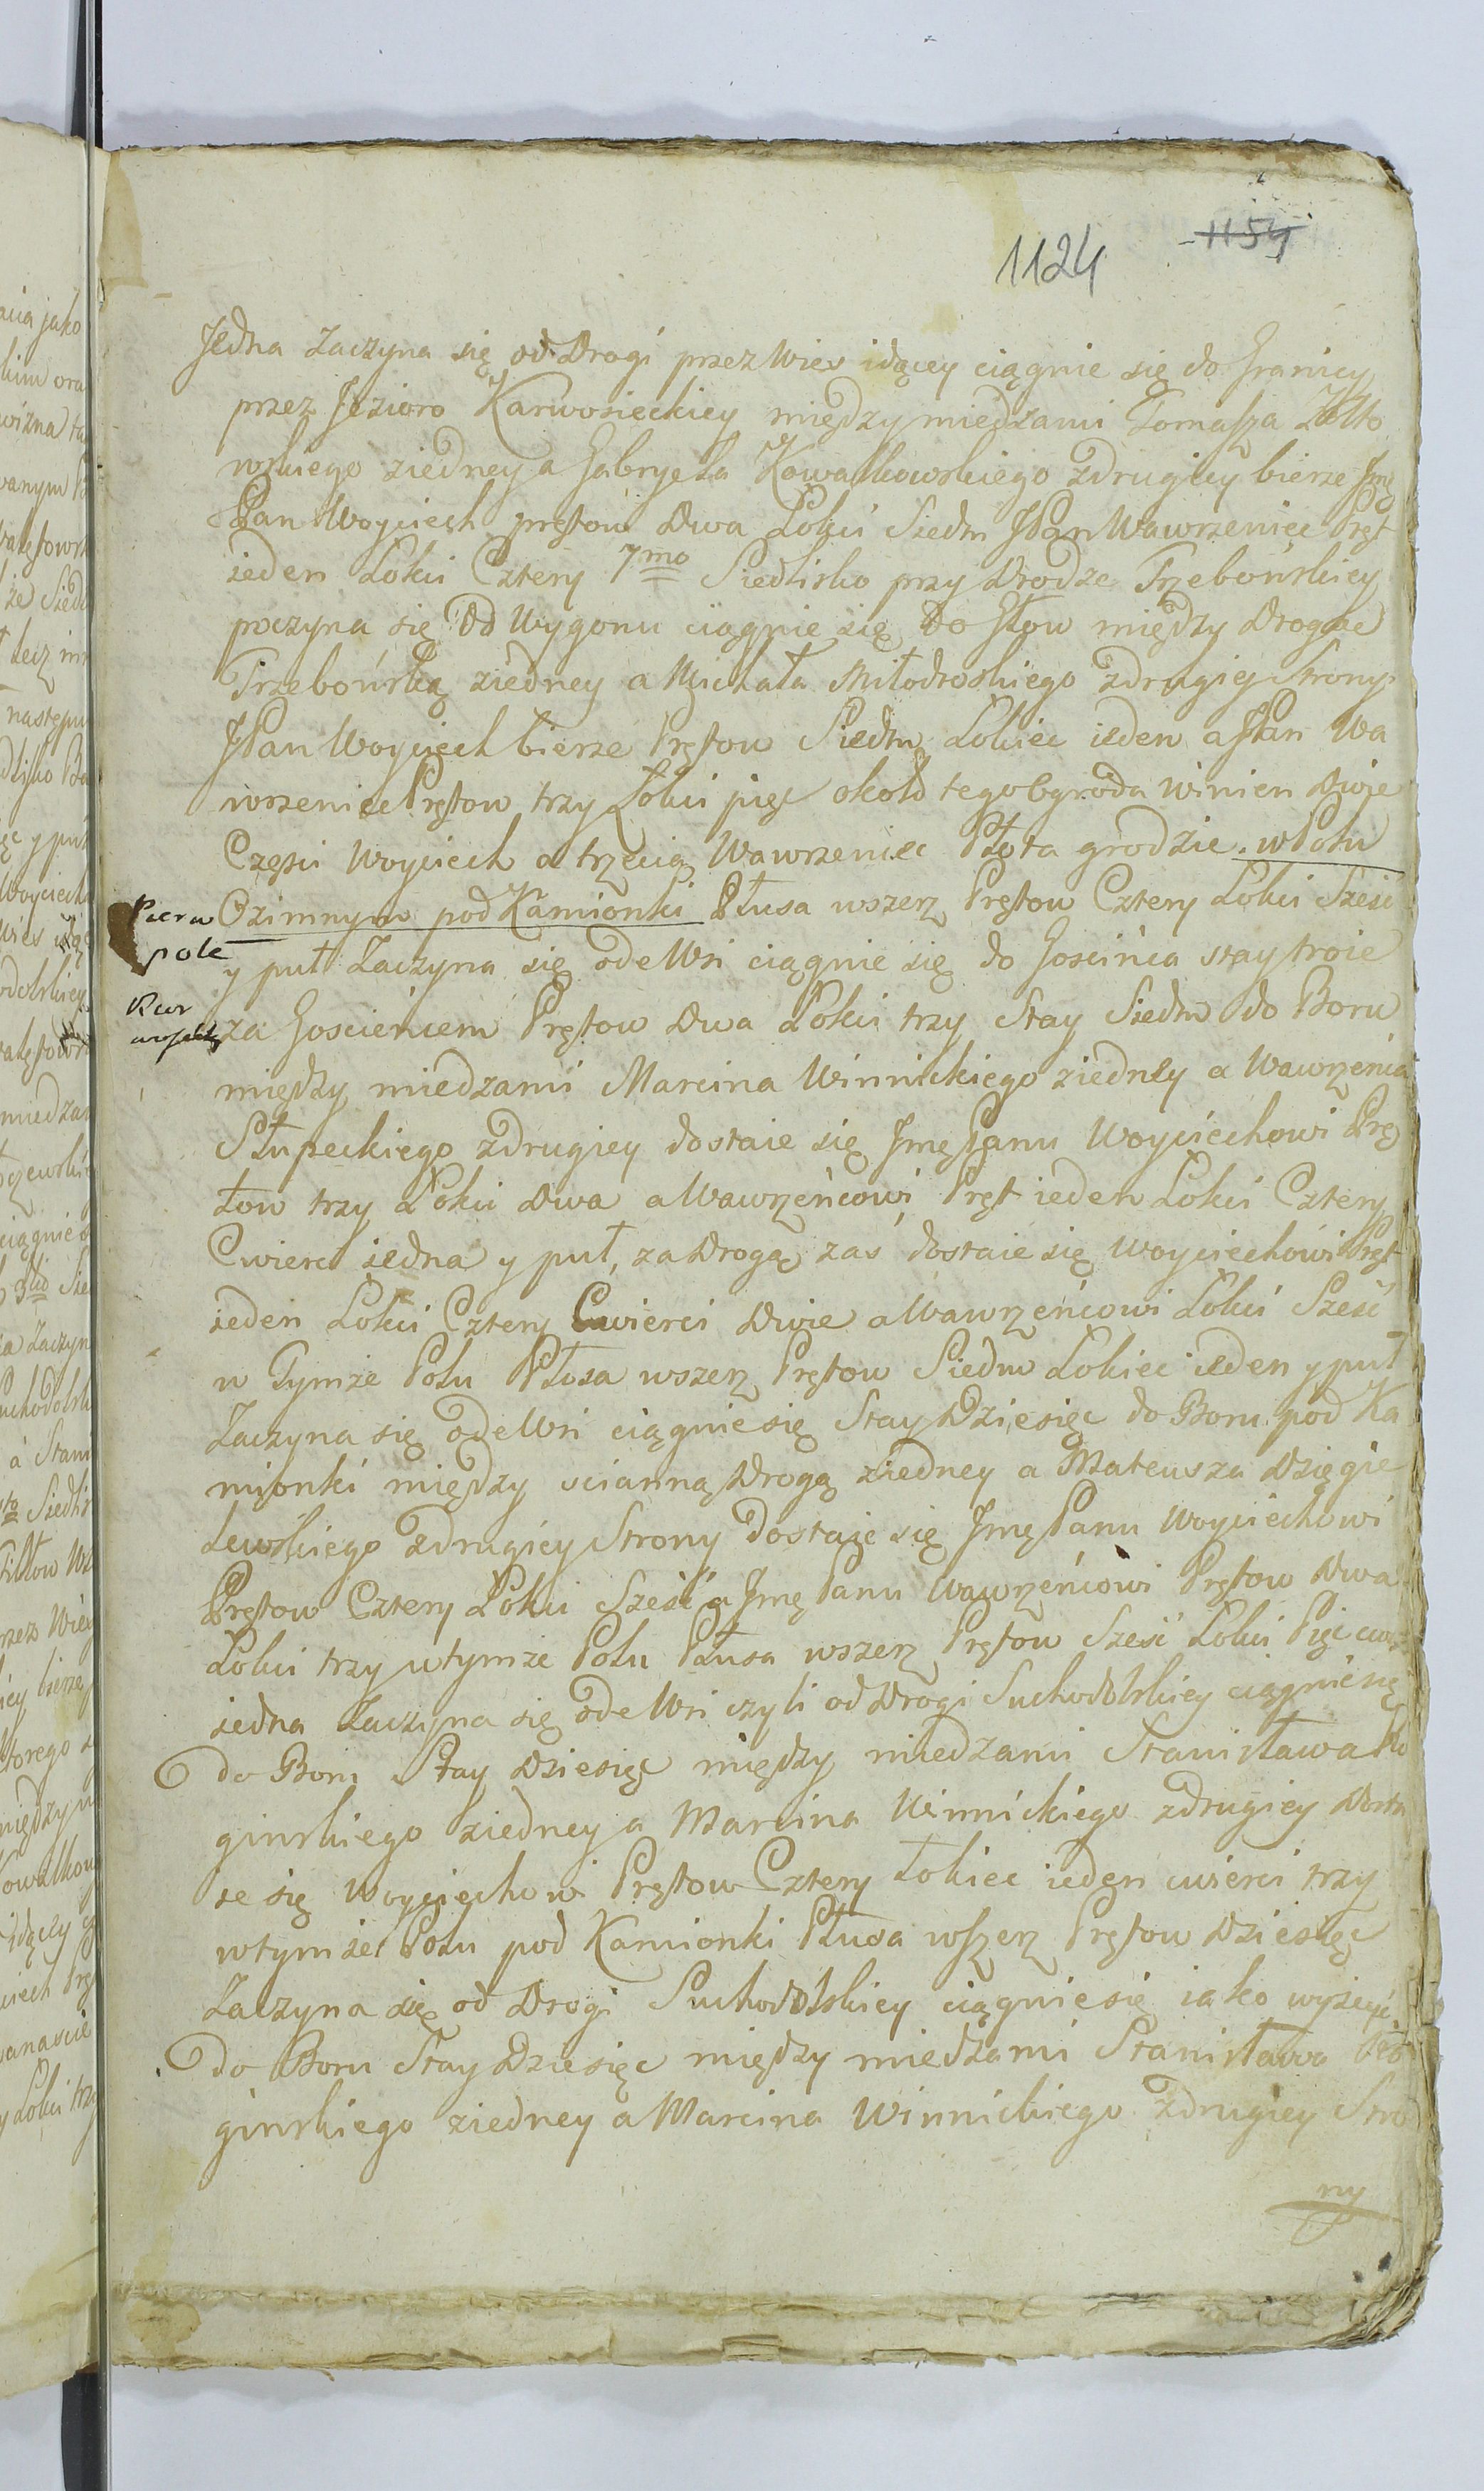 1124 1154
Jedna Zaczyna się od Drogi przez Wies idącey ciągnie się do Granicy
przez Jezioro Karwosieckiey między miedzami Tomasza Żołto
wskiego ziedney a Gabryela Kowalkowskiego zdrugiey bierze Jmę
Pan Woyciech prętow Dwa Łokci Siedm JPan Wawrzeniec Pręt
ieden Łokci Cztery 7mo Siedlisko przy Drodze Trzebońskiey
poczyna się Od Wygonu ciągnie się do między Drogąe
Trzebońską ziedney a Michała Miłodroskiego zdrugiey Strony
JPan Woyciech bierze Prętow Siedm Łokiec ieden a JPan Wa
wrzeniec Prętow trzy Łokci pięc około tego Ogroda winien dwie
Częsci Woyciech a trzecią Wawrzeniec Płota grodzic. w Polu
Ozimnym pod Kamionki Płusa wszerz Prętow Cztery Łokci Sześć
Pierw
pole
y puł Zaczyna się ode Wsi ciągnie się do Gościńca stay troie
za Goscieńcem Prętow Dwa Łokci trzy Stay Siedm do Boru
między miedzami Marcina Winnickiego ziedney a Wawrzeńca
Słupeckiego zdrugiey dostaie się Jmę Panu Woyciechowi Prę
tow trzy Łokci Dwa a Wawrzeńcowi Pręt ieden Łokci Cztery
Cwierc iedna y puł, za Drogą zaś dostaie się Woyciechowi Pręt
ieden Łokci Cztery Cwierci Dwie a Wawrzeńcowi Łokci Sześć
w Tymże Polu Płosa wszerz Prętow Siedm Łokiec ieden y puł
Zaczyna się ode Wsi ciągnie się Stay Dziesięc do Boru pod Ka
mionki między scianną Drogą ziedney a Mateusza Dzięgie
lewskiego zdrugiey Strony Dostaie się Jmę Panu Woyciechowi
Prętow Cztery Łokci Sześć a Jmę Panu Wawrzeńcowi Prętow Dwa
Łokci trzy wtymże Polu Płusa wszerz Prętow Sześć Łokci Pięc cwr
iedna Zaczyna się ode Wsi czyli od Drogi Suchodolskiey ciągnie się
do Boru Stay Dziesięc między miedzami Stanisława Ro
ginskiego ziedney a Marcina Winnickiego zdrugiey dosta
ie się Woyciechowi Prętow Cztery Łokiec ieden cwierci trzy
wtymże Polu pod Kamionki Płusa wszerz Prętow Dziesięc
Zaczyna się od Drogi Suchodolskiey ciągnie się iako wyżeyć
do Boru Stay Dziesięc między miedzami Stanisława Ro
ginskiego ziedney a Marcina Winnickiego zdrugiey Stro
ny